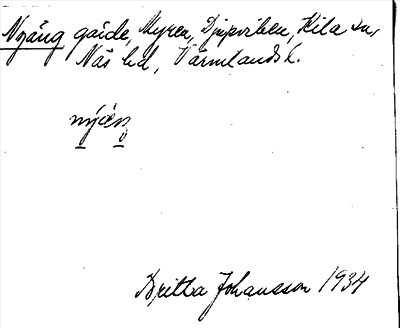 Nyäng gärde, Myren, Djupviken, Kila sn,
Näs hd, Värmlands l.
Britta Johansson 1934